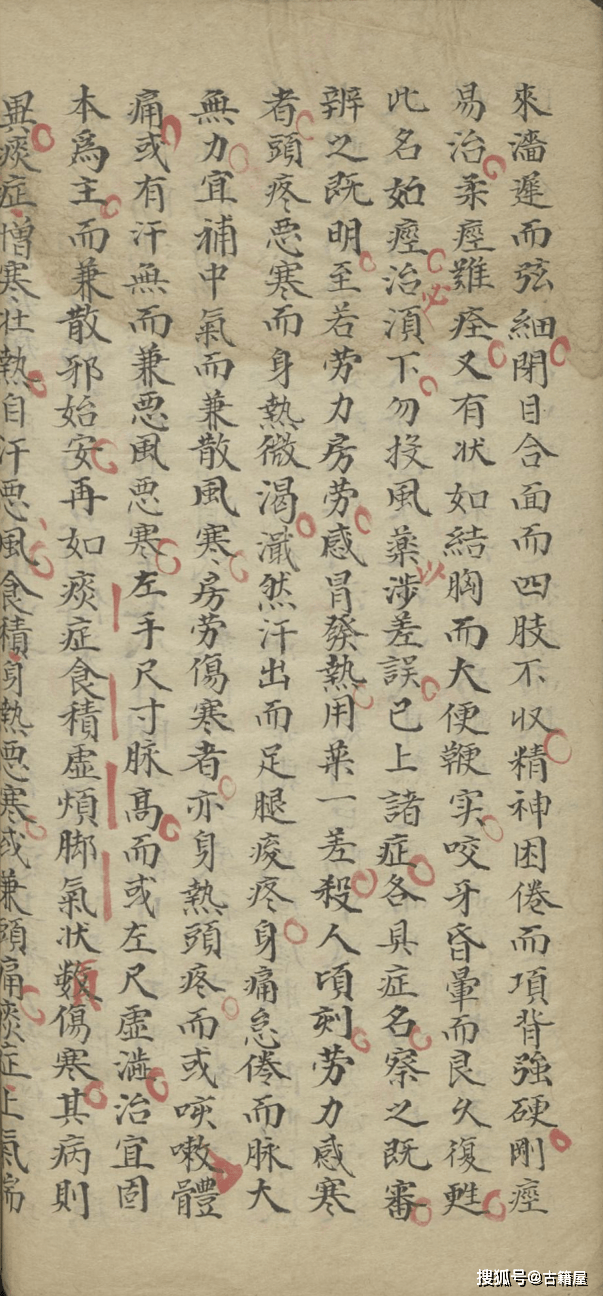 來濇遲而弦細閉目合面而四肢不収精神困倦而項背強硬剛痙
易治柔痙難痊又有状如結胸而大便鞕实咬牙昏暈而良久復甦
此名如痙治須下勿投風藥涉差誤已上諸症各具症名察之既審
必
以
辨之既明至若劳力房劳感冒發熱用薬一差殺人頃刻劳力感寒
者頭疼恶寒而身熱微渴濈然汗出而足腿痠疼身痛怠倦而脉大
無力宜補中氣而兼散風寒房劳傷寒者亦身熱頭疼而或咳嗽體
痛或有汗無而兼恶風恶寒左手尺寸脉髙而或左尺虚濇治宜固
本為主而兼散邪始安再如痰症食積虚煩脚氣状類傷寒其病則
異痰症憎寒壮熱自汗恶風食積身熱恶寒或兼頭痛痰症上氣喘
搜狐号@古籍屋